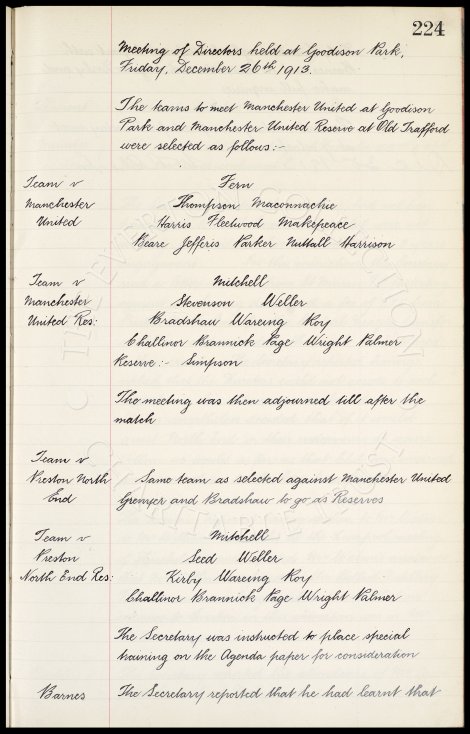 224
Meeting of Directors held at Goodison Park,
Friday, December 26th 1913.
The teams to meet Manchester United at Goodison
Park and Manchester United Reserve at Old Trafford
were selected as follows:-
Team v
Manchester
United
Fern
Thompson Maconnachie
Harris Fleetwood Makepeace
Beare Jefferis Parker Nuttall Harrison
Team v
Manchester
United Res:
Mitchell
Stevenson Weller
Bradshaw Wareing Roy
Challinor Brannick Page Wright Palmer
Reserve:- Simpson
The meeting was then adjourned till after the
match
Team v
Preston North
End
Same team as selected against Manchester United
Grenyer and Bradshaw to go as Reserves
Team v
Preston
North End Res:
Mitchell
Seed Weller
Kirby Wareing Roy
Challinor Brannick Page Wright Palmer
The Secretary was instructed to place special
training on the Agenda paper for consideration
Barnes
The Secretary reported that he had learnt that